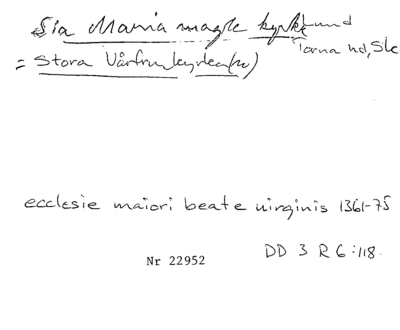 Sia Maria magle kyrka Lund
Torna hd, Sk
= Stora Vårfrukyrkan
ecclesie maiori beate uirginis 1361-75
DD 3 R 6:118.
Nr 22952